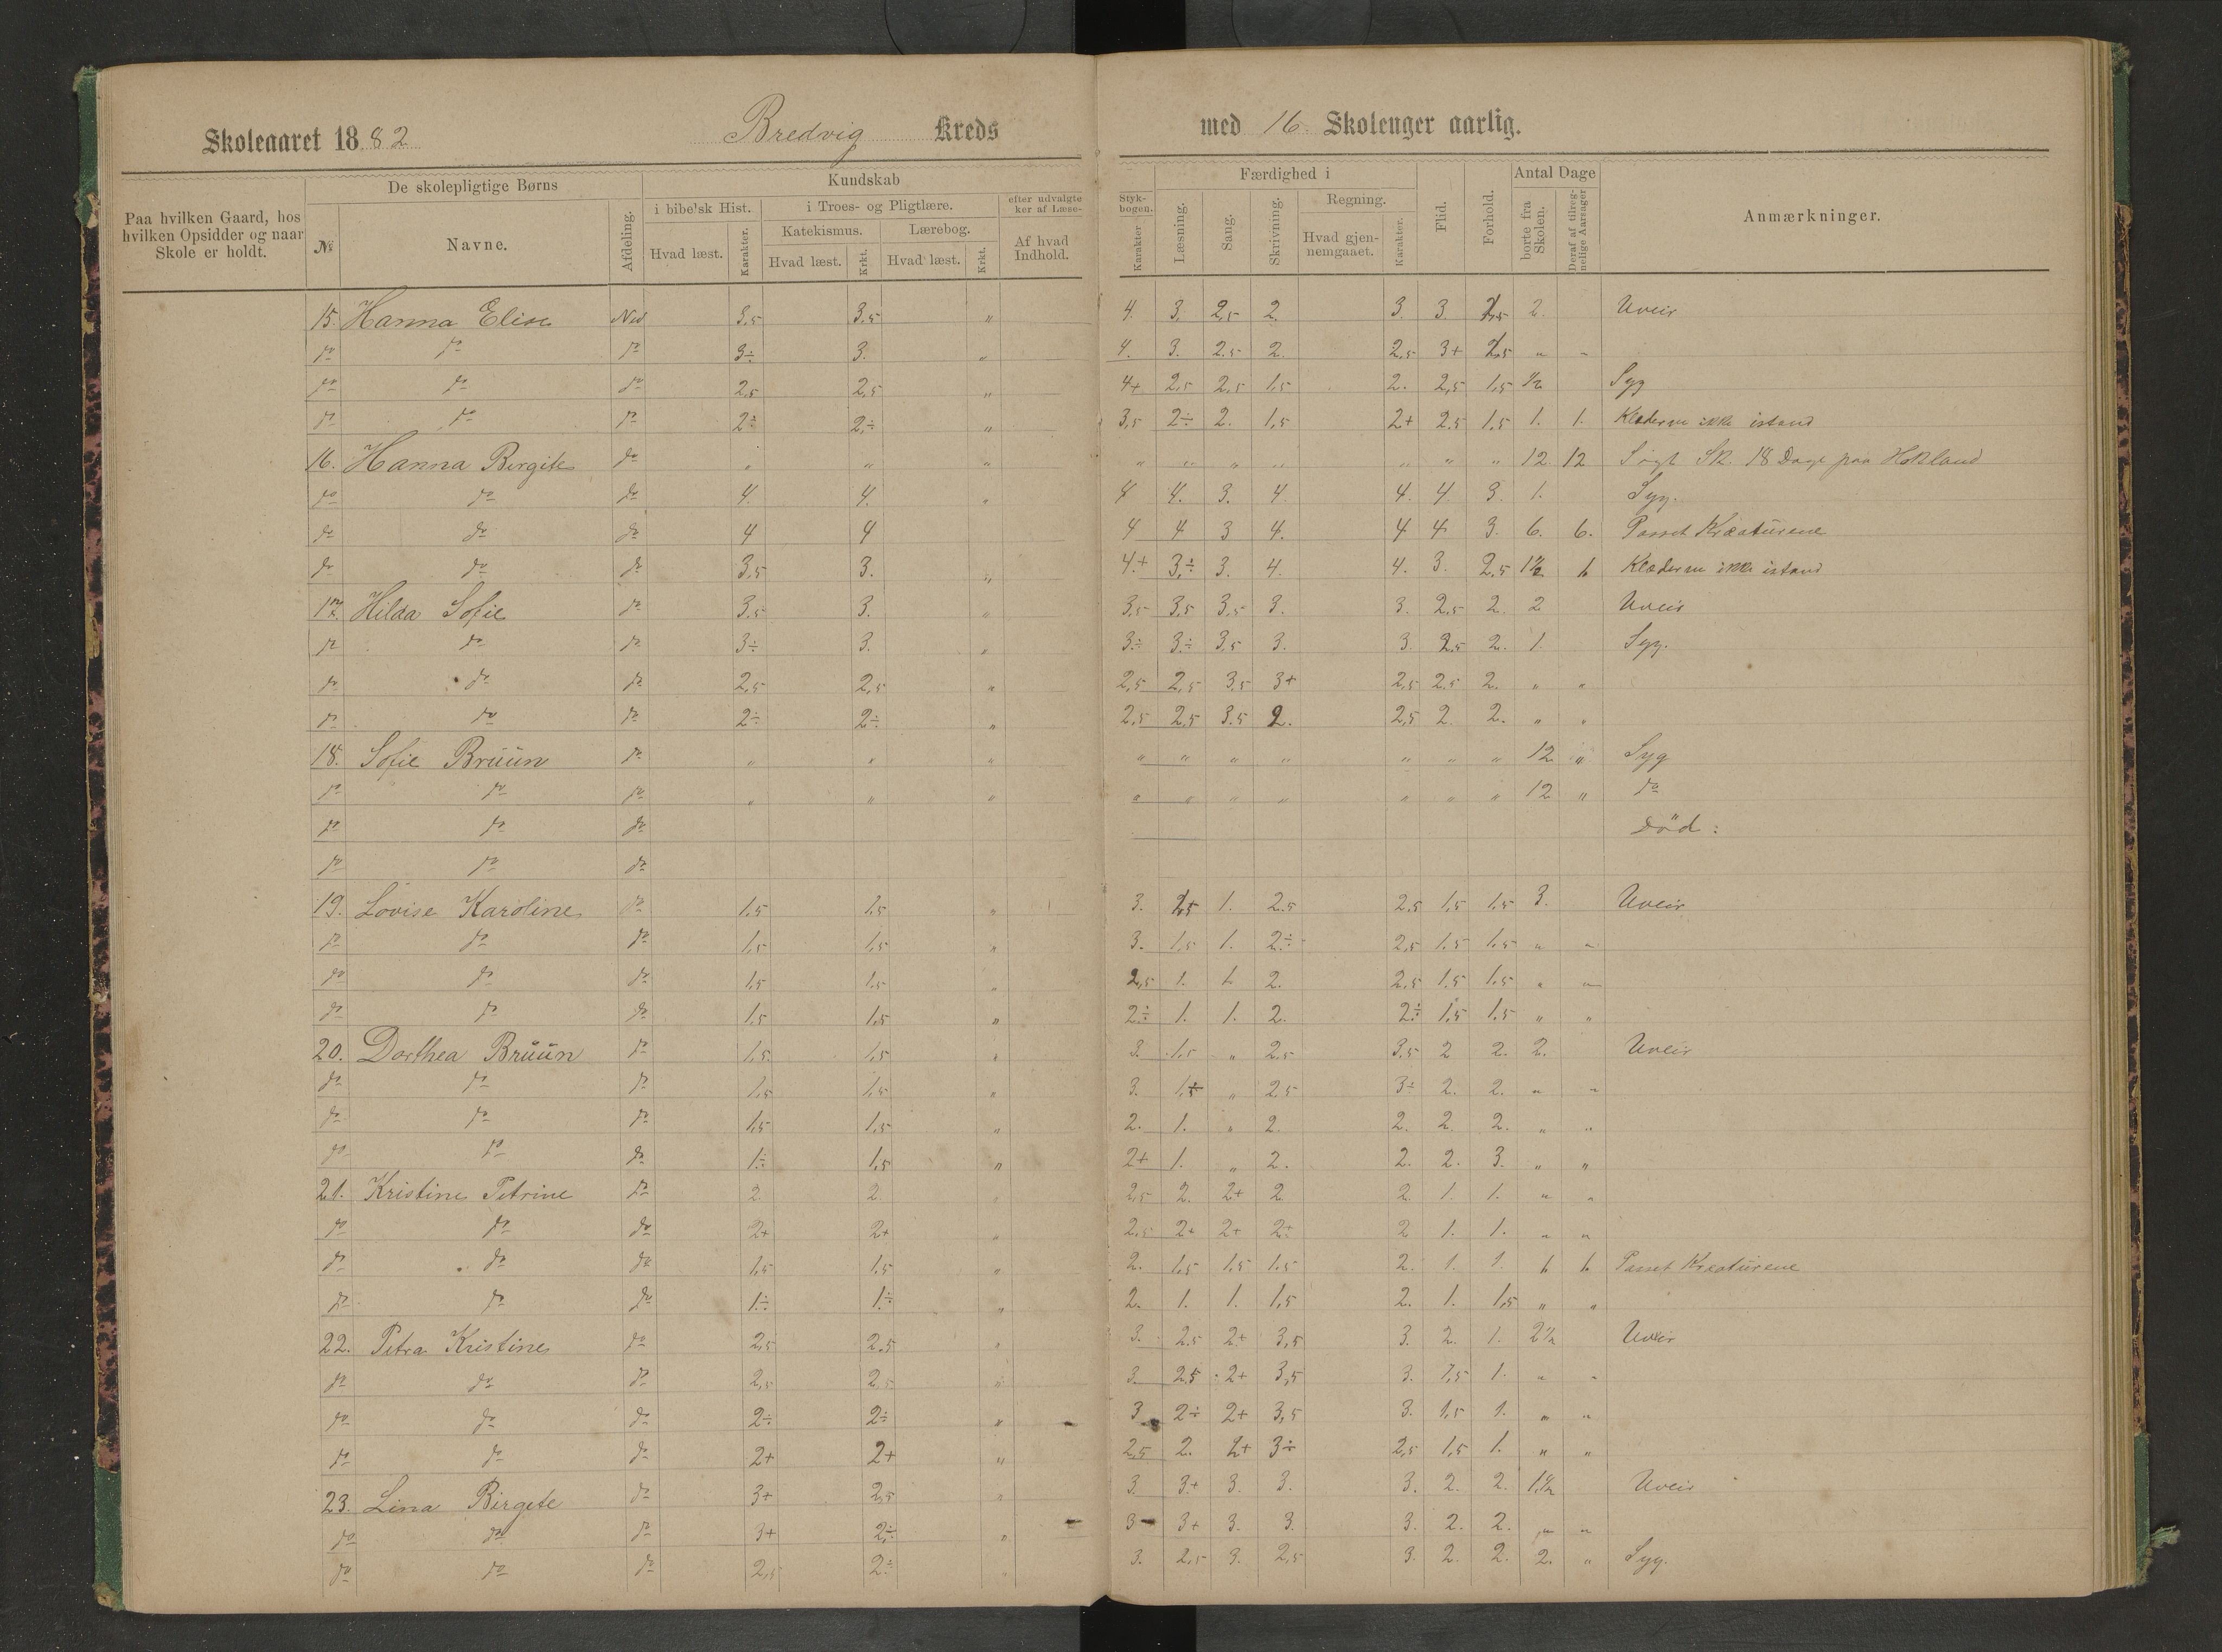 Skoleaaret 1882 Bredvig Kreds med 16. Skoleuger aarlig.
Paa hvilken Gaard, hos hvilken Opsidder og naar Skole er holdt.
De skolepligtige Børns
№ Navne. Afdeling.
Kundskab
i bibelsk Hist. Hvad læst. Karakter.
i Troes- og Pligtlære.
Katekismus. Hvad læst. Krkt.
Lærebog. Hvad læst. Krkt.
efter udvalgte
ker af Læse-
Af hvad Indhold.
Styk-
bogen.
Karakter
Færdighed i
Læsning. Sang. Skrivning.
Regning. Hvad gjen-
nemgaaet. Karakter.
Flid. Forhold.
Antal Dage
borte fra Skolen.
Deraf af tilreg-
nelige Aarsager
Anmærkninger.
15. Hanna Elise Ned 3.5 3.5 " 4. 3. 2,5 2. 3. 3. 2. Uveir
do do do 3÷ 3. " 4. 3. 2.5 2. 2,5 3+ " "
do do do 2,5 2,5 " 4+ 2,5 2,5 1.5 2. 2,5 1,5 ½ Syg
do do do 2÷ 2÷ " 3,5 2÷ 2. 1,5 2+ 2.5 1.5 1. 1. Klæderne ikke istand
16. Hanna Birgite do " " " " " " " " " " 12 12 Søgt Sk. 18 Dage paa Hokland
do do do 4. 4. " 4 4. 3. 4. 4. 4 3. 1. Syg.
do do do 4 4 4 4 3 4. 4 4 3. 6. 6. Passet Kreaturene
do do do 3,5 3. " 4.+ 3.÷ 3. 4. 4. 3. 2,5 1½ 1. Klæderne ikke istand
17. Hilda Sofie do 3.5 3. " 3,5 3,5 3,5 3. 3. 2.5 2. 2 Uveir
do do do 3÷ 3. " 3÷ 3÷ 3,5 3. 3. 2.5 2. 1. Syg.
do do do 2,5 2,5 " 2,5 2,5 3,5 3+ 2,5 2.5 2. " "
do do do 2÷ 2÷ " 2,5 2,5 3.5 2. 2,5 2. 2. " "
18. Sofie Brüün do " " " " " " " " " " 12 " Syg
do do do " " " " " " " " " " 12 " do
do do do Död:
do do do
19. Lovise Karoline do 1,5 1,5 " 3. 1. 2.5 2,5 1,5 1.5 3. Uveir
do do do 1,5 1,5 " 3. 1,5 1. 2÷ 2,5 1.5 1.5 " "
do do do 1,5 1,5 " 2,5 1. 1. 2. 2.5 1.5 1,5 " "
do do do 1,5 1,5 " 2÷ 1. 1. 2. 2÷ 1,5 1.5 " "
20. Dorthea Brüün do 1,5 1,5 " 3. 1,5 " 2.5 3,5 2 2. 2. Uveir
do do do 1,5 1,5 " 3. " 2.5 3÷ 2. 2. " "
do do do 1,5 1,5 " 2. 1. " 2. 2. 2. 2. " "
do do do 1÷ 1,5 " 2+ 1. " 2. 2. 2. 3. " "
21. Kristine Petrine do 2. 2. " 2,5 2. 2+ 2 2. 1. 1. " "
do do do 2+ 2+ " 2,5 2+ 2+ 2÷ 2 1. 1. " "
do do do 1,5 1.5 " 2. 1,5 1,5 1.5 2. 1. 1. 1. 1. Passet Kreaturene
do do do 1÷ 1÷ " 2. 1. 1. 1,5 2. 1. 1,5 " "
22. Petra Kristine do 2,5 2.5 " 3. 2.5 2+ 3,5 3. 2. 1. 2½ Uveir
do do do 2,5 2,5 " 3. 2.5 2+ 3,5 3. 1,5 1. " "
do do do 2÷ 2÷ " 3 2÷ 2+ 3,5 3. 1,5 1. " "
do do do 2+ 2+ " 2,5 2. 2+ 3÷ 2,5 1,5 1. " "
23. Lina Birgete do 3+ 2,5 " 3. 3+ 3. 3. 3. 2. 2. 1½ Uveir
do do do 3+ 2÷ " 3 3+ 3. 3. 3. 2. 2. " "
do do do 2,5 2÷ " 3. 2,5 3. 2,5 3. 2. 2. 2. " Syg.